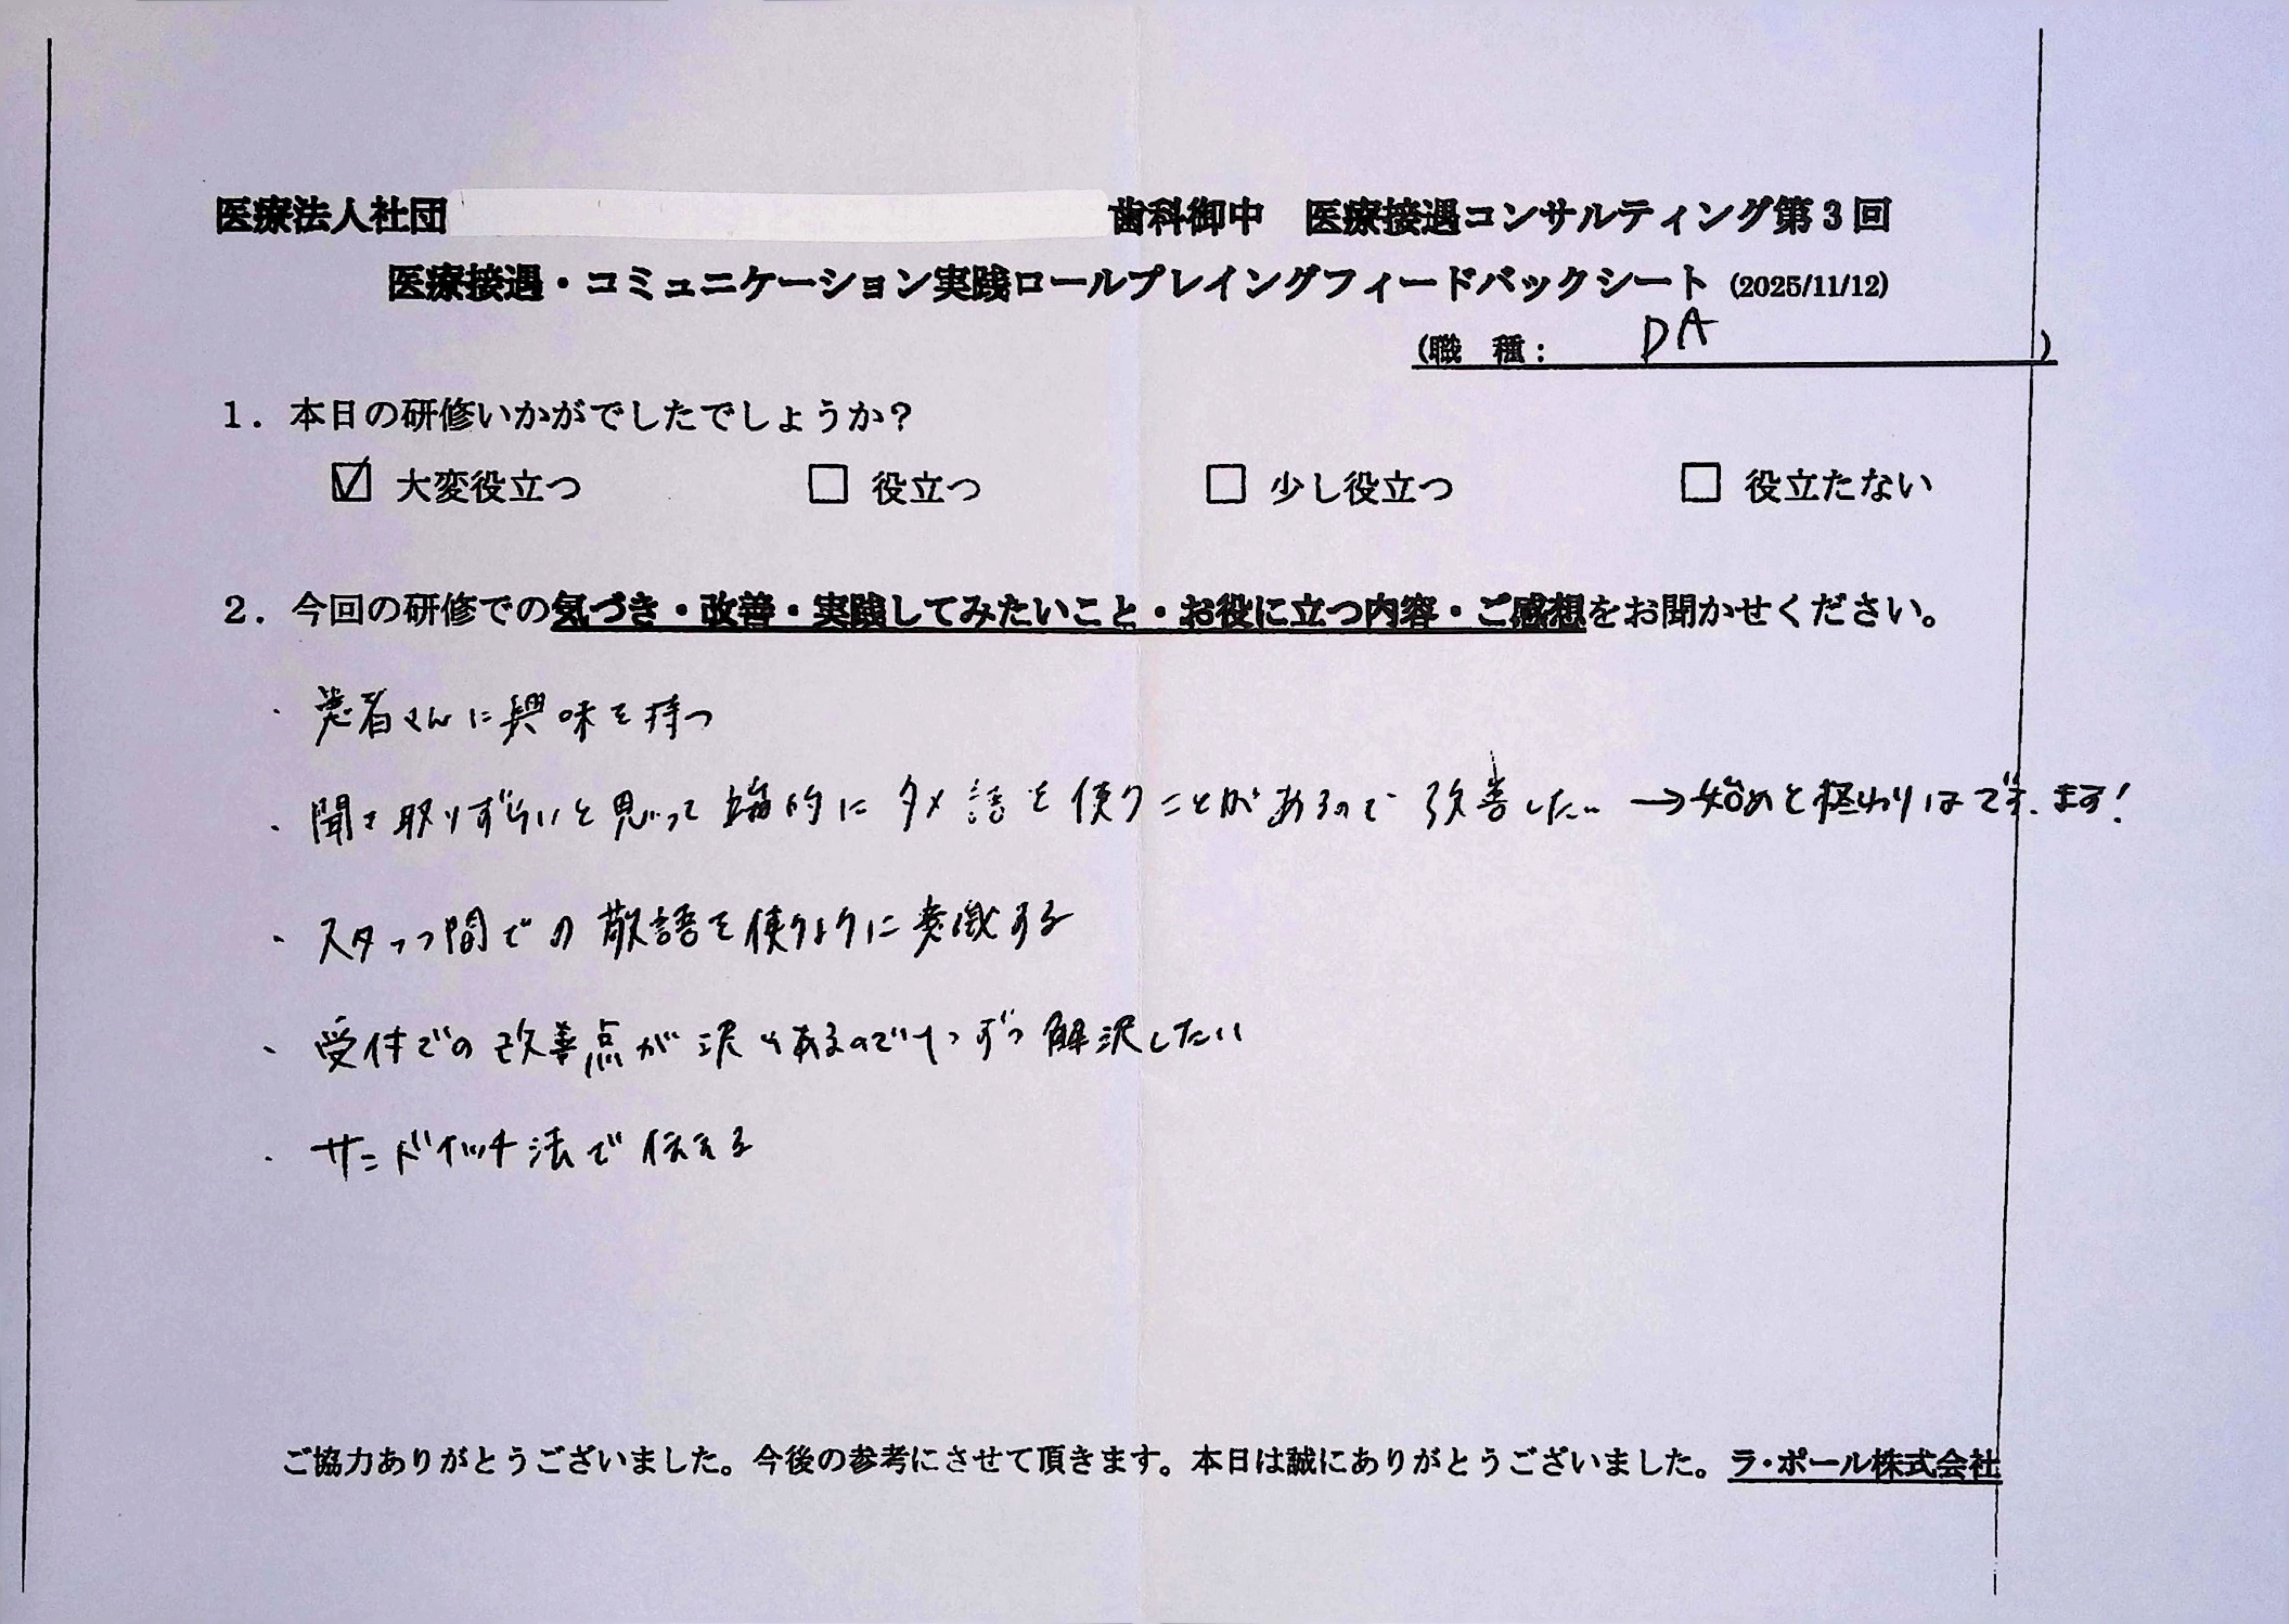 医療法人社団 歯科御中 医療接遇コンサルティング第3回
医療接遇・コミュニケーション実践ロールプレイングフィードバックシート (2025/11/12)
(職 種: DA )
1. 本日の研修いかがでしたでしょうか?
☑ 大変役立つ □ 役立つ □ 少し役立つ □ 役立たない
2. 今回の研修での気づき・改善・実践してみたいこと・お役に立つ内容・ご感想をお聞かせください。
・患者さんに興味を持つ
・聞き取りずらいと思って端的にタメ語を使うことがあるので改善したい →始めと終わりはです、ます!
・スタッフ間での敬語を使うように意識する
・受付での改善点が沢山あるので1つずつ解決したい
・サンドイッチ法で伝える
ご協力ありがとうございました。今後の参考にさせて頂きます。本日は誠にありがとうございました。ラ・ポール株式会社